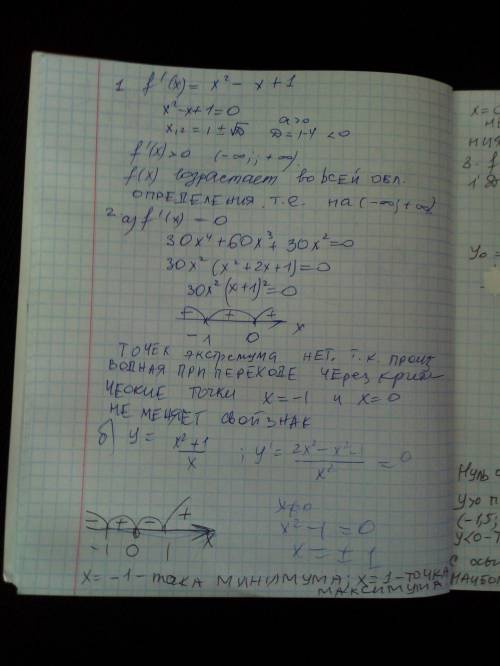 1 f'(x) = x² - x + 1
x² - x + 1 = 0
x₁,₂ = 1 ± √D
a>0
D = 1-4 < 0
f'(x) > 0 (-∞; +∞)
f(x) возрастает во всей обл.
определения, т.е. на (-∞; +∞)
2 а) f'(x) = 0
30x⁴ + 60x³ + 30x² = 0
30x² (x² + 2x + 1) = 0
30x² (x+1)² = 0
+ + +
-1 0 x
точек экстремума нет, т.к. произ
водная при переходе через крити
ческие точки x = -1 и x = 0
не меняет свой знак
б) y = x²+1 / x ; y' = 2x² - x² - 1 / x² = 0
x≠0
x² - 1 = 0
x = ± 1
- + - +
-1 0 1 x
x = -1 - точка минимума; x = 1 - точка
максимума
x = 0
ния
3. f
y₀ =
Нуль
y>0 п
(-1,5;
y<0 -
с осы
наибол